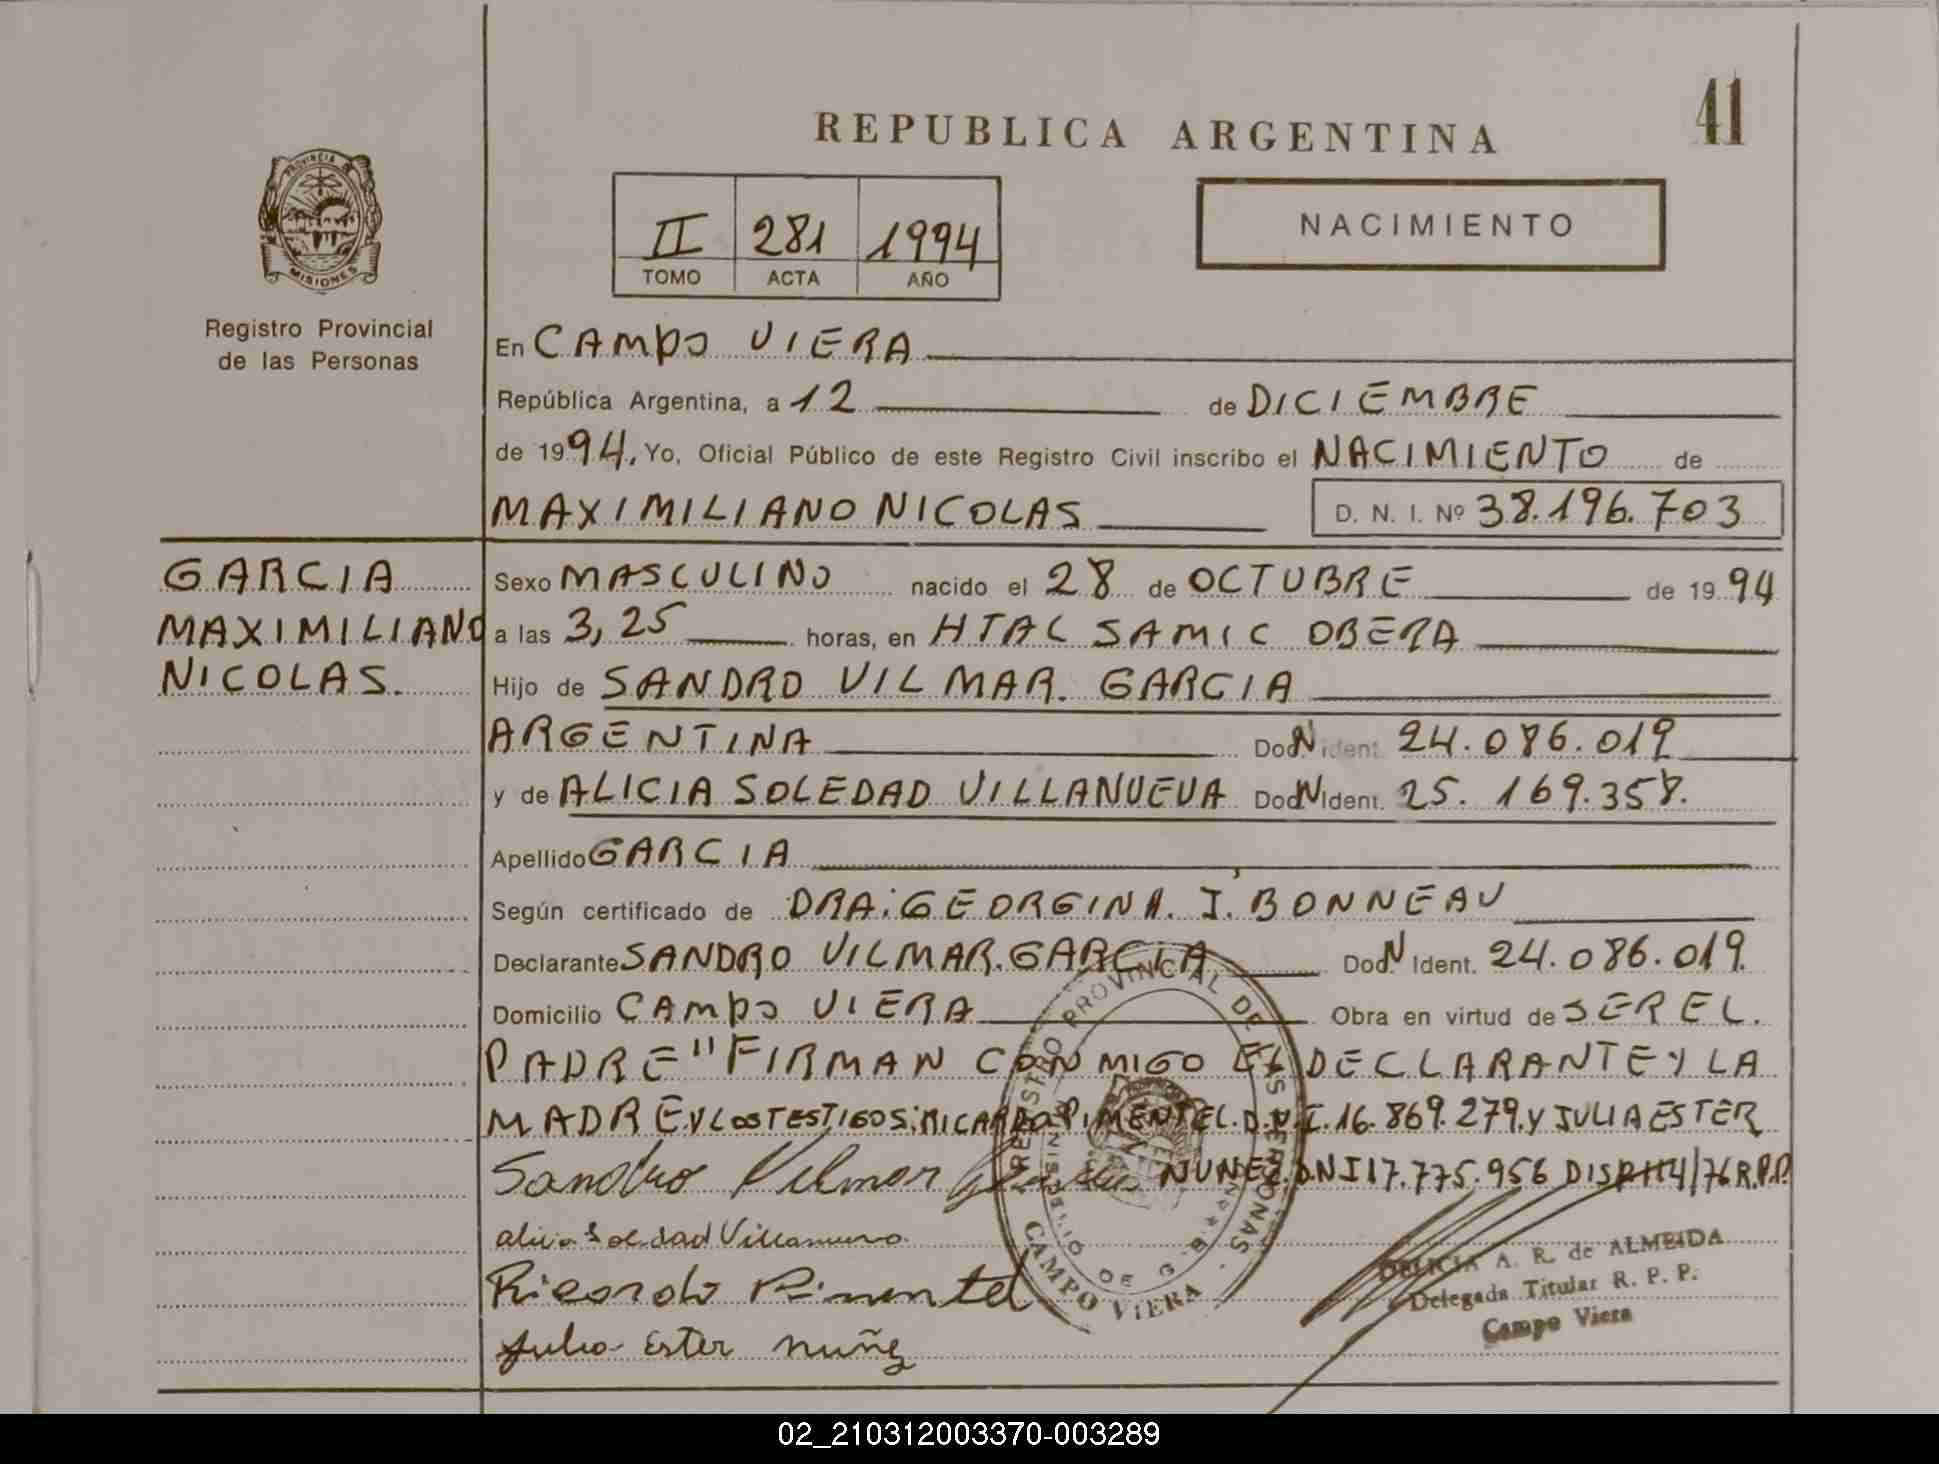 41
REPUBLICA ARGENTINA
PROVINCIA DE
MISIONES
Registro Provincial
de las Personas
II 281 1994
TOMO ACTA AÑO
NACIMIENTO
En CAMPO VIERA
República Argentina, a 12 de DICIEMBRE
de 1994, Yo, Oficial Público de este Registro Civil inscribo el NACIMIENTO de
MAXIMILIANO NICOLAS D. N. I. Nº 38.196.703
GARCIA
MAXIMILIANO
NICOLAS.
Sexo MASCULINO nacido el 28 de OCTUBRE de 1994
a las 3,25 horas, en HTAL SAMIC OBERA
Hijo de SANDRO VILMAR. GARCIA
ARGENTINA Doc. N ident. 24.086.019
y de ALICIA SOLEDAD VILLANUEVA Doc. N Ident. 25.169.358.
Apellido GARCIA
Según certificado de DRA: GEORGINA. I. BONNEAU
Declarante SANDRO VILMAR. GARCIA Doc. N Ident. 24.086.019.
Domicilio CAMPO VIERA Obra en virtud de SER EL.
PADRE" FIRMAN CONMIGO EL DECLARANTE Y LA
MADRE Y LOS TESTIGOS: RICARDO PIMENTEL. D.N.I. 16.869.279. Y JULIA ESTER
NUÑEZ. DNI 17.775.956 DISP.114/76 R.P.P.
Sandro Vilmar Garcia
alicia Soledad Villanueva
Ricardo Pimentel
Julia Ester Nuñez
REGISTRO PROVINCIAL DE LAS PERSONAS
CAMPO VIERA
DELICIA A. R. de ALMEIDA
Delegada Titular R. P. P.
Campo Viera
02_210312003370-003289